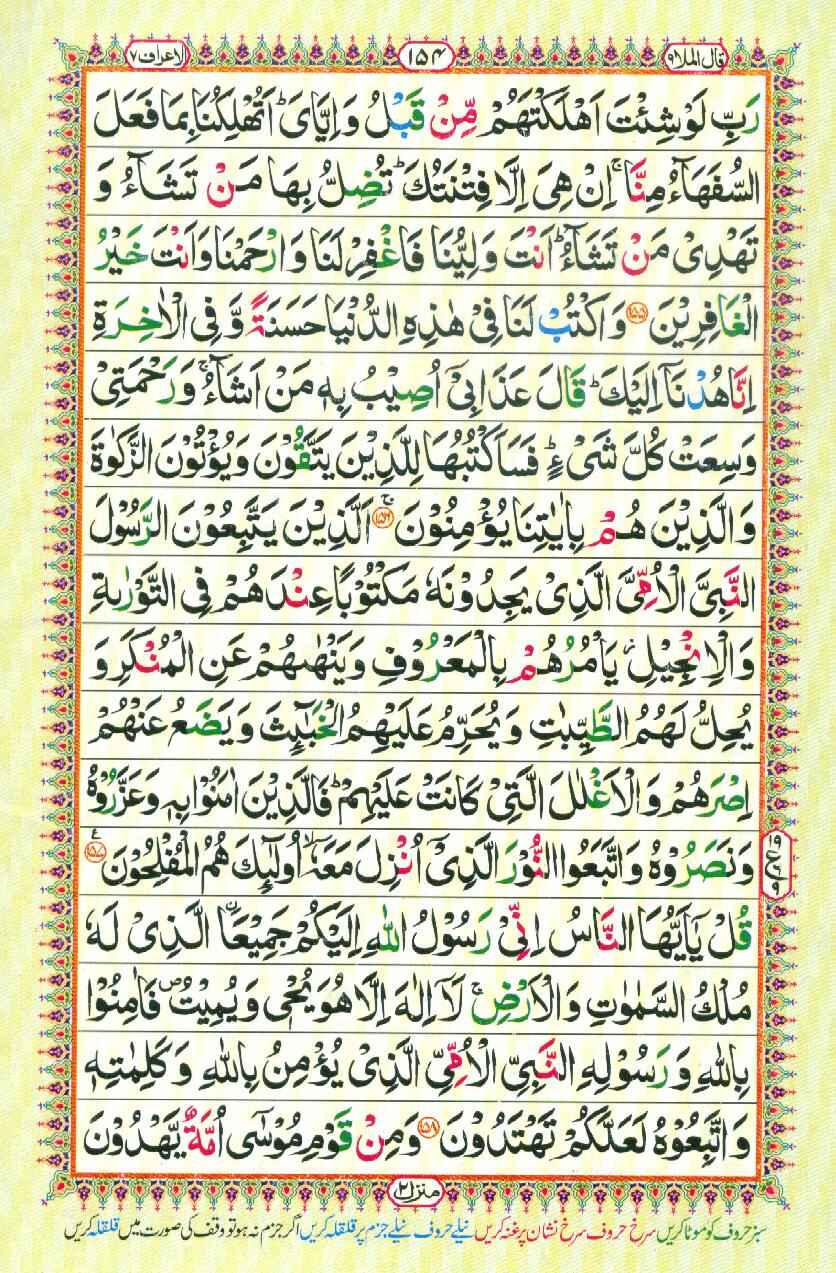 قال الملا ۹
۱۵۴
الاعراف ۷
رَبِّ لَوْ شِئْتَ اَهْلَكْتَهُمْ مِّنْ قَبْلُ وَ اِیَّایَ ؕ اَتُهْلِكُنَا بِمَا فَعَلَ
السُّفَهَآءُ مِنَّا ۚ اِنْ هِیَ اِلَّا فِتْنَتُكَ ؕ تُضِلُّ بِهَا مَنْ تَشَآءُ وَ
تَهْدِیْ مَنْ تَشَآءُ ؕ اَنْتَ وَلِیُّنَا فَاغْفِرْ لَنَا وَ ارْحَمْنَا وَ اَنْتَ خَیْرُ
الْغَافِرِیْنَ ۱۵۵ وَ اكْتُبْ لَنَا فِیْ هٰذِهِ الدُّنْیَا حَسَنَةً وَّ فِی الْاٰخِرَةِ
اِنَّا هُدْنَاۤ اِلَیْكَ ؕ قَالَ عَذَابِیْۤ اُصِیْبُ بِهٖ مَنْ اَشَآءُ ۚ وَ رَحْمَتِیْ
وَسِعَتْ كُلَّ شَیْءٍ ؕ فَسَاَكْتُبُهَا لِلَّذِیْنَ یَتَّقُوْنَ وَ یُؤْتُوْنَ الزَّكٰوةَ
وَ الَّذِیْنَ هُمْ بِاٰیٰتِنَا یُؤْمِنُوْنَ ۱۵۶ۚ اَلَّذِیْنَ یَتَّبِعُوْنَ الرَّسُوْلَ
النَّبِیَّ الْاُمِّیَّ الَّذِیْ یَجِدُوْنَهٗ مَكْتُوْبًا عِنْدَهُمْ فِی التَّوْرٰىةِ
وَ الْاِنْجِیْلِ ؗ یَاْمُرُهُمْ بِالْمَعْرُوْفِ وَ یَنْهٰىهُمْ عَنِ الْمُنْكَرِ وَ
یُحِلُّ لَهُمُ الطَّیِّبٰتِ وَ یُحَرِّمُ عَلَیْهِمُ الْخَبٰٓىِٕثَ وَ یَضَعُ عَنْهُمْ
اِصْرَهُمْ وَ الْاَغْلٰلَ الَّتِیْ كَانَتْ عَلَیْهِمْ ؕ فَالَّذِیْنَ اٰمَنُوْا بِهٖ وَ عَزَّرُوْهُ
وَ نَصَرُوْهُ وَ اتَّبَعُوا النُّوْرَ الَّذِیْۤ اُنْزِلَ مَعَهٗۤ ۙ اُولٰٓىِٕكَ هُمُ الْمُفْلِحُوْنَ ۱۵۷ۧ
قُلْ یٰۤاَیُّهَا النَّاسُ اِنِّیْ رَسُوْلُ اللّٰهِ اِلَیْكُمْ جَمِیْعَا ۣالَّذِیْ لَهٗ
مُلْكُ السَّمٰوٰتِ وَ الْاَرْضِ ۚ لَاۤ اِلٰهَ اِلَّا هُوَ یُحْیٖ وَ یُمِیْتُ ۪ فَاٰمِنُوْا
بِاللّٰهِ وَ رَسُوْلِهِ النَّبِیِّ الْاُمِّیِّ الَّذِیْ یُؤْمِنُ بِاللّٰهِ وَ كَلِمٰتِهٖ
وَ اتَّبِعُوْهُ لَعَلَّكُمْ تَهْتَدُوْنَ ۱۵۸ وَ مِنْ قَوْمِ مُوْسٰۤى اُمَّةٌ یَّهْدُوْنَ
منزل ۲
سبز حروف کو موٹا کریں سرخ حروف سرخ نشان پر غنہ کریں نیلے حروف نیلے جزم پر قلقلہ کریں اگر جزم نہ ہو تو وقف کی صورت میں قلقلہ کریں